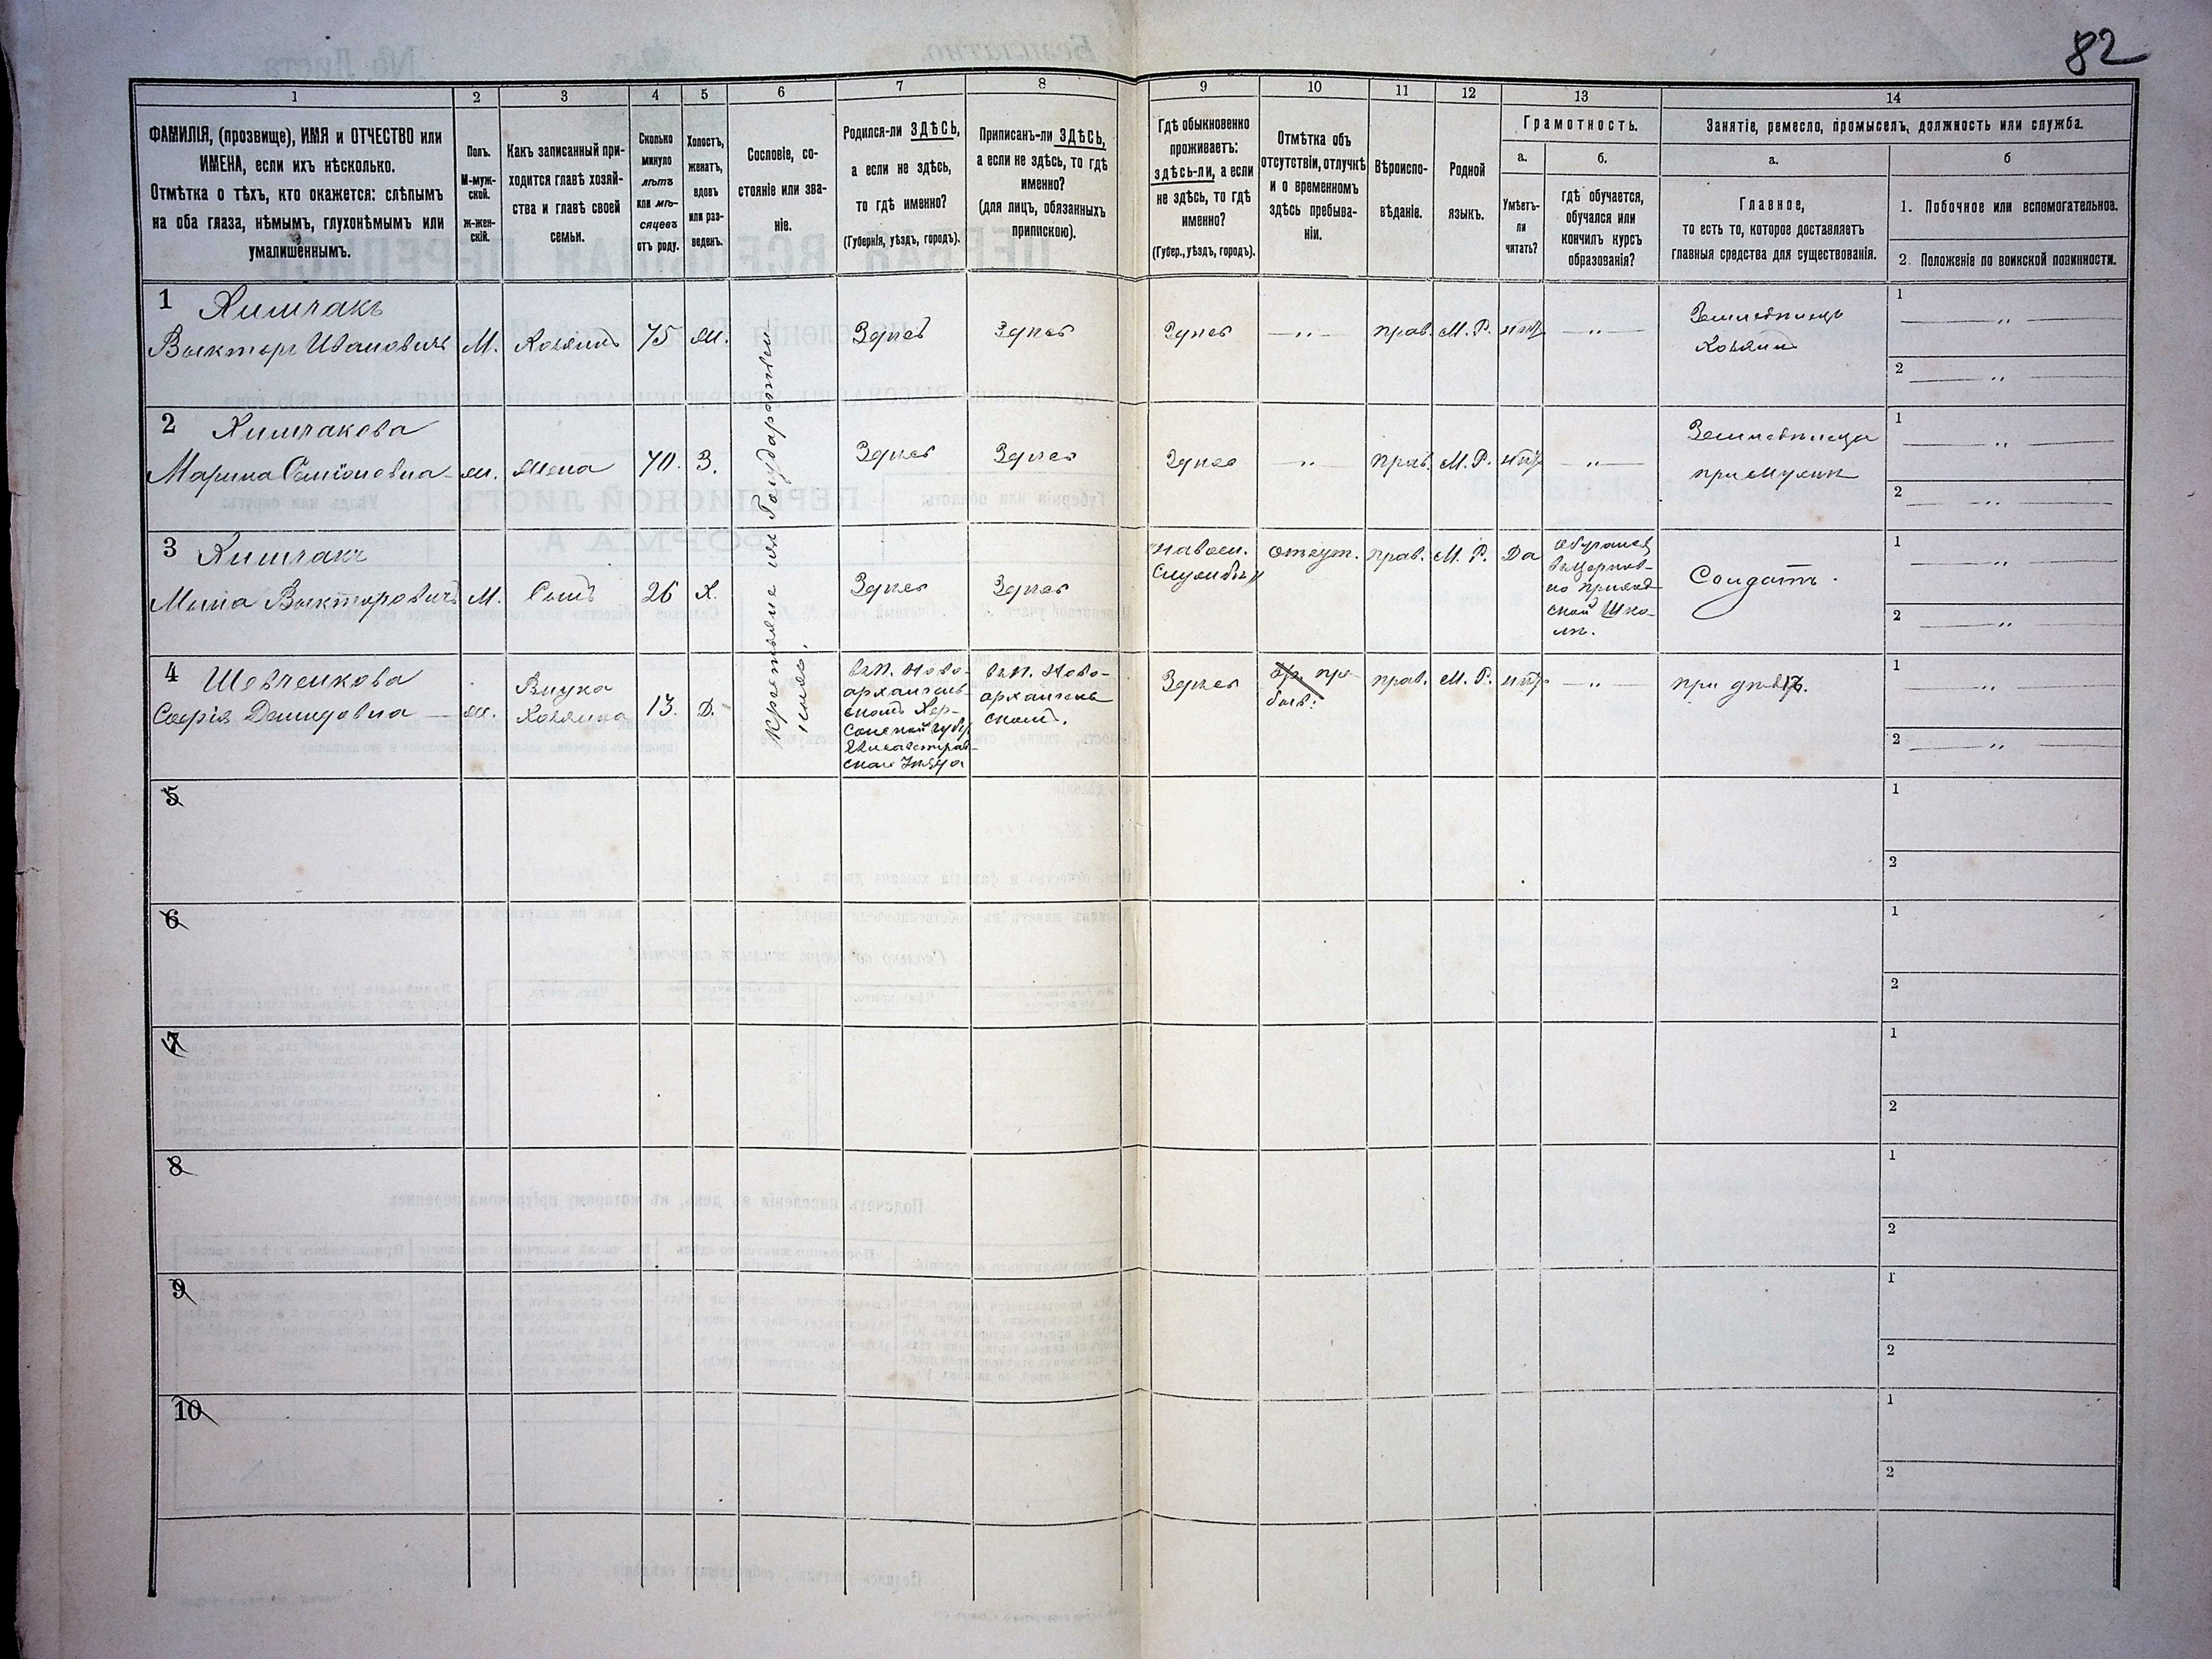 82
1
2
3
4
5
6
7
8
9
10
11
12
13
14
ФАМИЛІЯ, (прозвище), ИМЯ и ОТЧЕСТВО или
ИМЕНА, если ихъ нѣсколько.
Отмѣтка о тѣхъ, кто окажется: слѣпымъ
на оба глаза, нѣмымъ, глухонѣмымъ или
умалишеннымъ.
Полъ.
М-муж-
ской.
Ж-жен-
скій.
Какъ записанный при-
ходится главѣ хозяй-
ства и главѣ своей
семьи.
Сколько
минуло
лѣтъ
или мѣ-
сяцевъ
отъ роду.
Холостъ,
женатъ,
вдовъ
или раз-
веденъ.
Сословіе, со-
стояніе или зва-
ніе.
Родился-ли ЗДѢСЬ,
а если не здѣсь,
то гдѣ именно?
(Губернія, уѣздъ, городъ).
Приписанъ-ли ЗДѢСЬ,
а если не здѣсь, то гдѣ
именно?
(для лицъ, обязанныхъ
припискою).
Гдѣ обыкновенно
проживаетъ:
здѣсь-ли, а если
не здѣсь, то гдѣ
именно?
(Губер., уѣздъ, городъ).
Отмѣтка объ
отсутствіи, отлучкѣ
и о временномъ
здѣсь пребыва-
ніи.
Вѣроиспо-
вѣданіе.
Родной
языкъ.
Грамотность.
а.
Умѣетъ-
ли
читать?
б.
гдѣ обучается,
обучался или
кончилъ курсъ
образованія?
Занятіе, ремесло, промыселъ, должность или служба.
а.
Главное,
то есть то, которое доставляетъ
главныя средства для существованія.
б
1. Побочное или вспомогательное.
2. Положеніе по воинской повинности.
1 Кишлакъ
Викторъ Ивановичъ М. Хозяинъ 75 Ж. Здѣсь Здѣсь Здѣсь — „ — прав. М. Р. нѣтъ — „ —
Земледѣлецъ
Хозяинъ
1 — „ —
2 — „ —
Крестьяне изъ Государствен
2 Кишлакова
Марина Семіоновна ж. Жена 70. З. Здѣсь Здѣсь Здѣсь — „ — прав. М. Р. нѣтъ — „ —
Земледѣлица
при мужѣ
1 — „ —
2 — „ —
3 Кишлакъ
Мина Викторовичъ М. Сынъ 26 Х. Здѣсь Здѣсь
На воен.
Службѣ
отсут. прав. М. Р. Да
обучался
въ Церков-
но приход
ской Шко-
лѣ.
Солдатъ.
1 — „ —
2 — „ —
4 Шевченкова
Софія Демидовна ж.
Внука
Хозяина 13. Д.
въ П. Ново-
архангель-
скомъ Хер-
сонской губер
Елисаветград-
скаго Уѣзда
въ П. Ново-
архангель
скомъ.
Здѣсь
вр. пре
быв:
прав. М. Р. нѣтъ — „ —
1 — „ —
2 — „ —
5
1
2
6
1
2
7
1
2
8
1
2
9
1
2
10
1
2